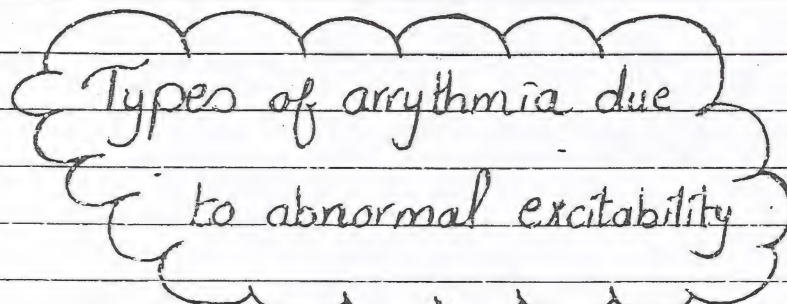 Types of arrythmia due
to abnormal excitability